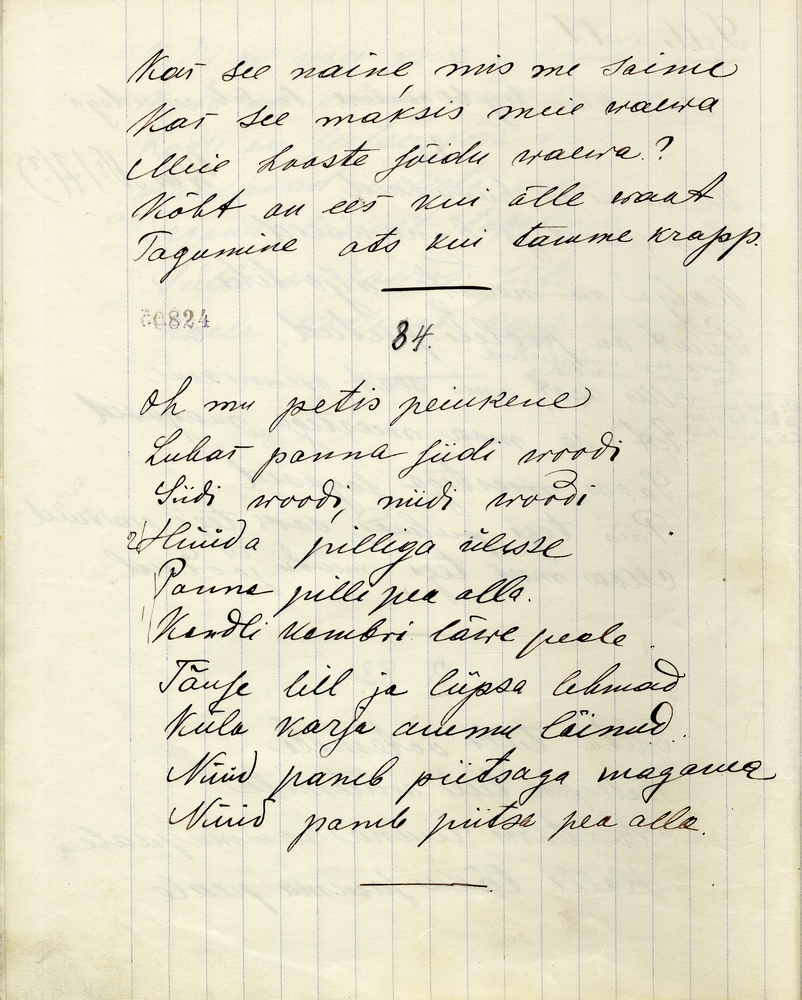 Kas see naine, mis me saime
Kas see maksis meie waewa
Meie hooste sõidu waewa?
Kõht on ees kui õlle waat
Tagumine ots kui tamme krapp.
00824
84.
Oh mu petis peiukene
Lubas panna siidi woodi
Siidi woodi, niidi woodi
Hüüda pilliga ülesse
Panna pilli pea alla.
Kandli kambri läwe peale
Tõuse lill ja lüpsa lehmad
Küla karja ammu läinud.
Nüüd paneb piitsaga magama
Nüüd paneb piitsa pea alla.